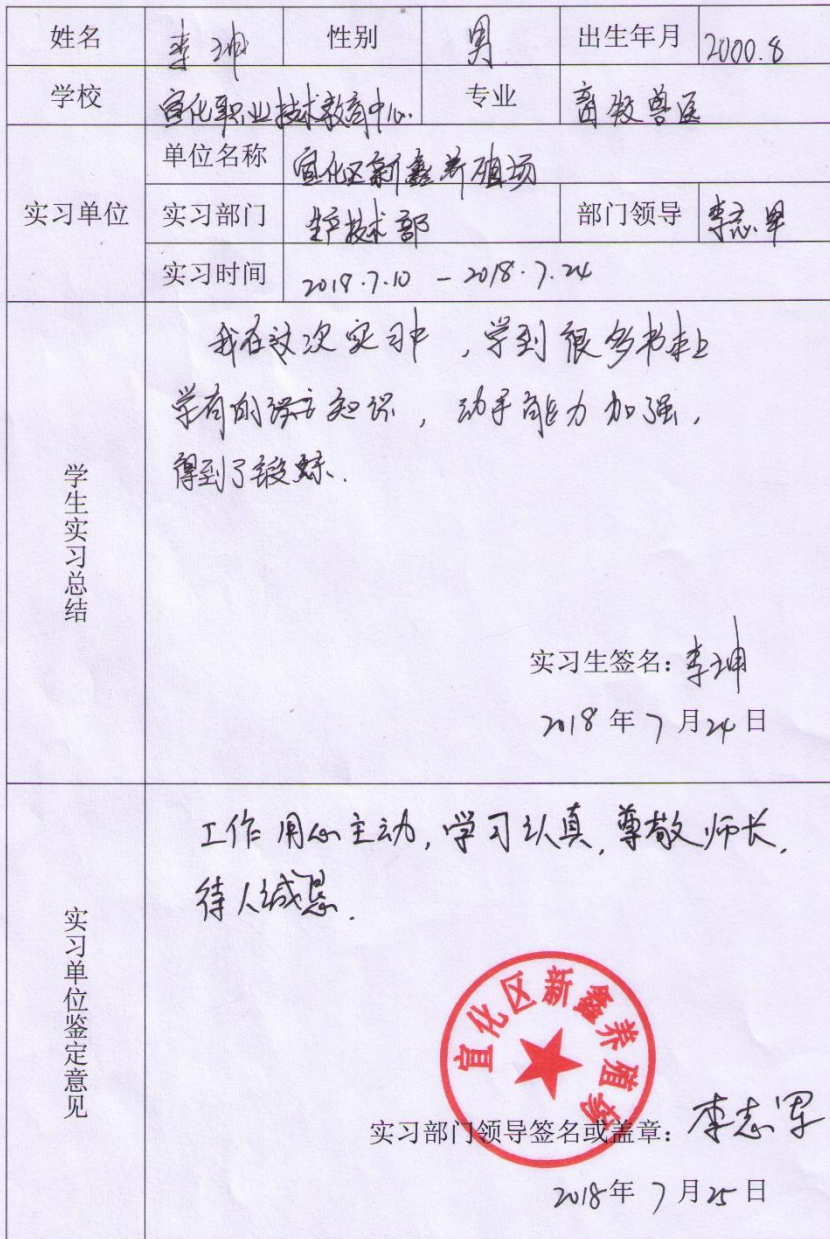 姓名 李坤 性别 男 出生年月 2000.8
学校 宣化职业技术教育中心. 专业 畜牧兽医
实习单位
单位名称 宣化区新鑫养殖场
实习部门 生产技术部 部门领导 李志军
实习时间 2018.7.10 - 2018.7.24
学生实习总结
我在这次实习中，学到很多书本上
学有的 知识，动手能力加强，
得到了锻炼.
实习生签名：李坤
2018年7月24日
实习单位鉴定意见
工作用心主动，学习认真，尊敬师长，
待人诚恳.
宣化区新鑫养殖场
实习部门领导签名或盖章：李志军
2018年7月25日